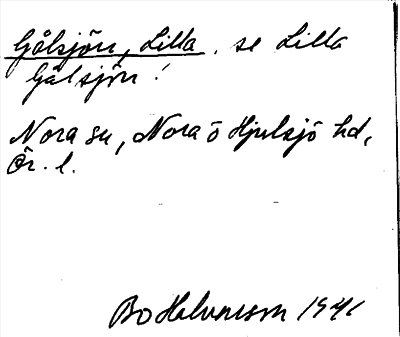 Gålsjön, Lilla, se Lilla
Gålsjön!
Nora sn, Nora o Hjulsjö hd,
Ör. l.
Bo Halvarsson 1941